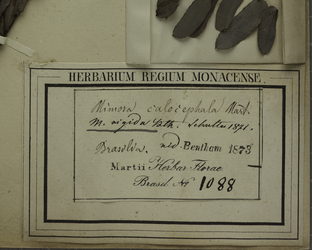 HERBARIUM REGIUM MONACENSE.
Mimosa calocephala Mart.
M. rigida Bth. Schultes 1871.
Brasilia. vid. Bentham 1873
Martii Herbar. Florae
Brasil. No 1088